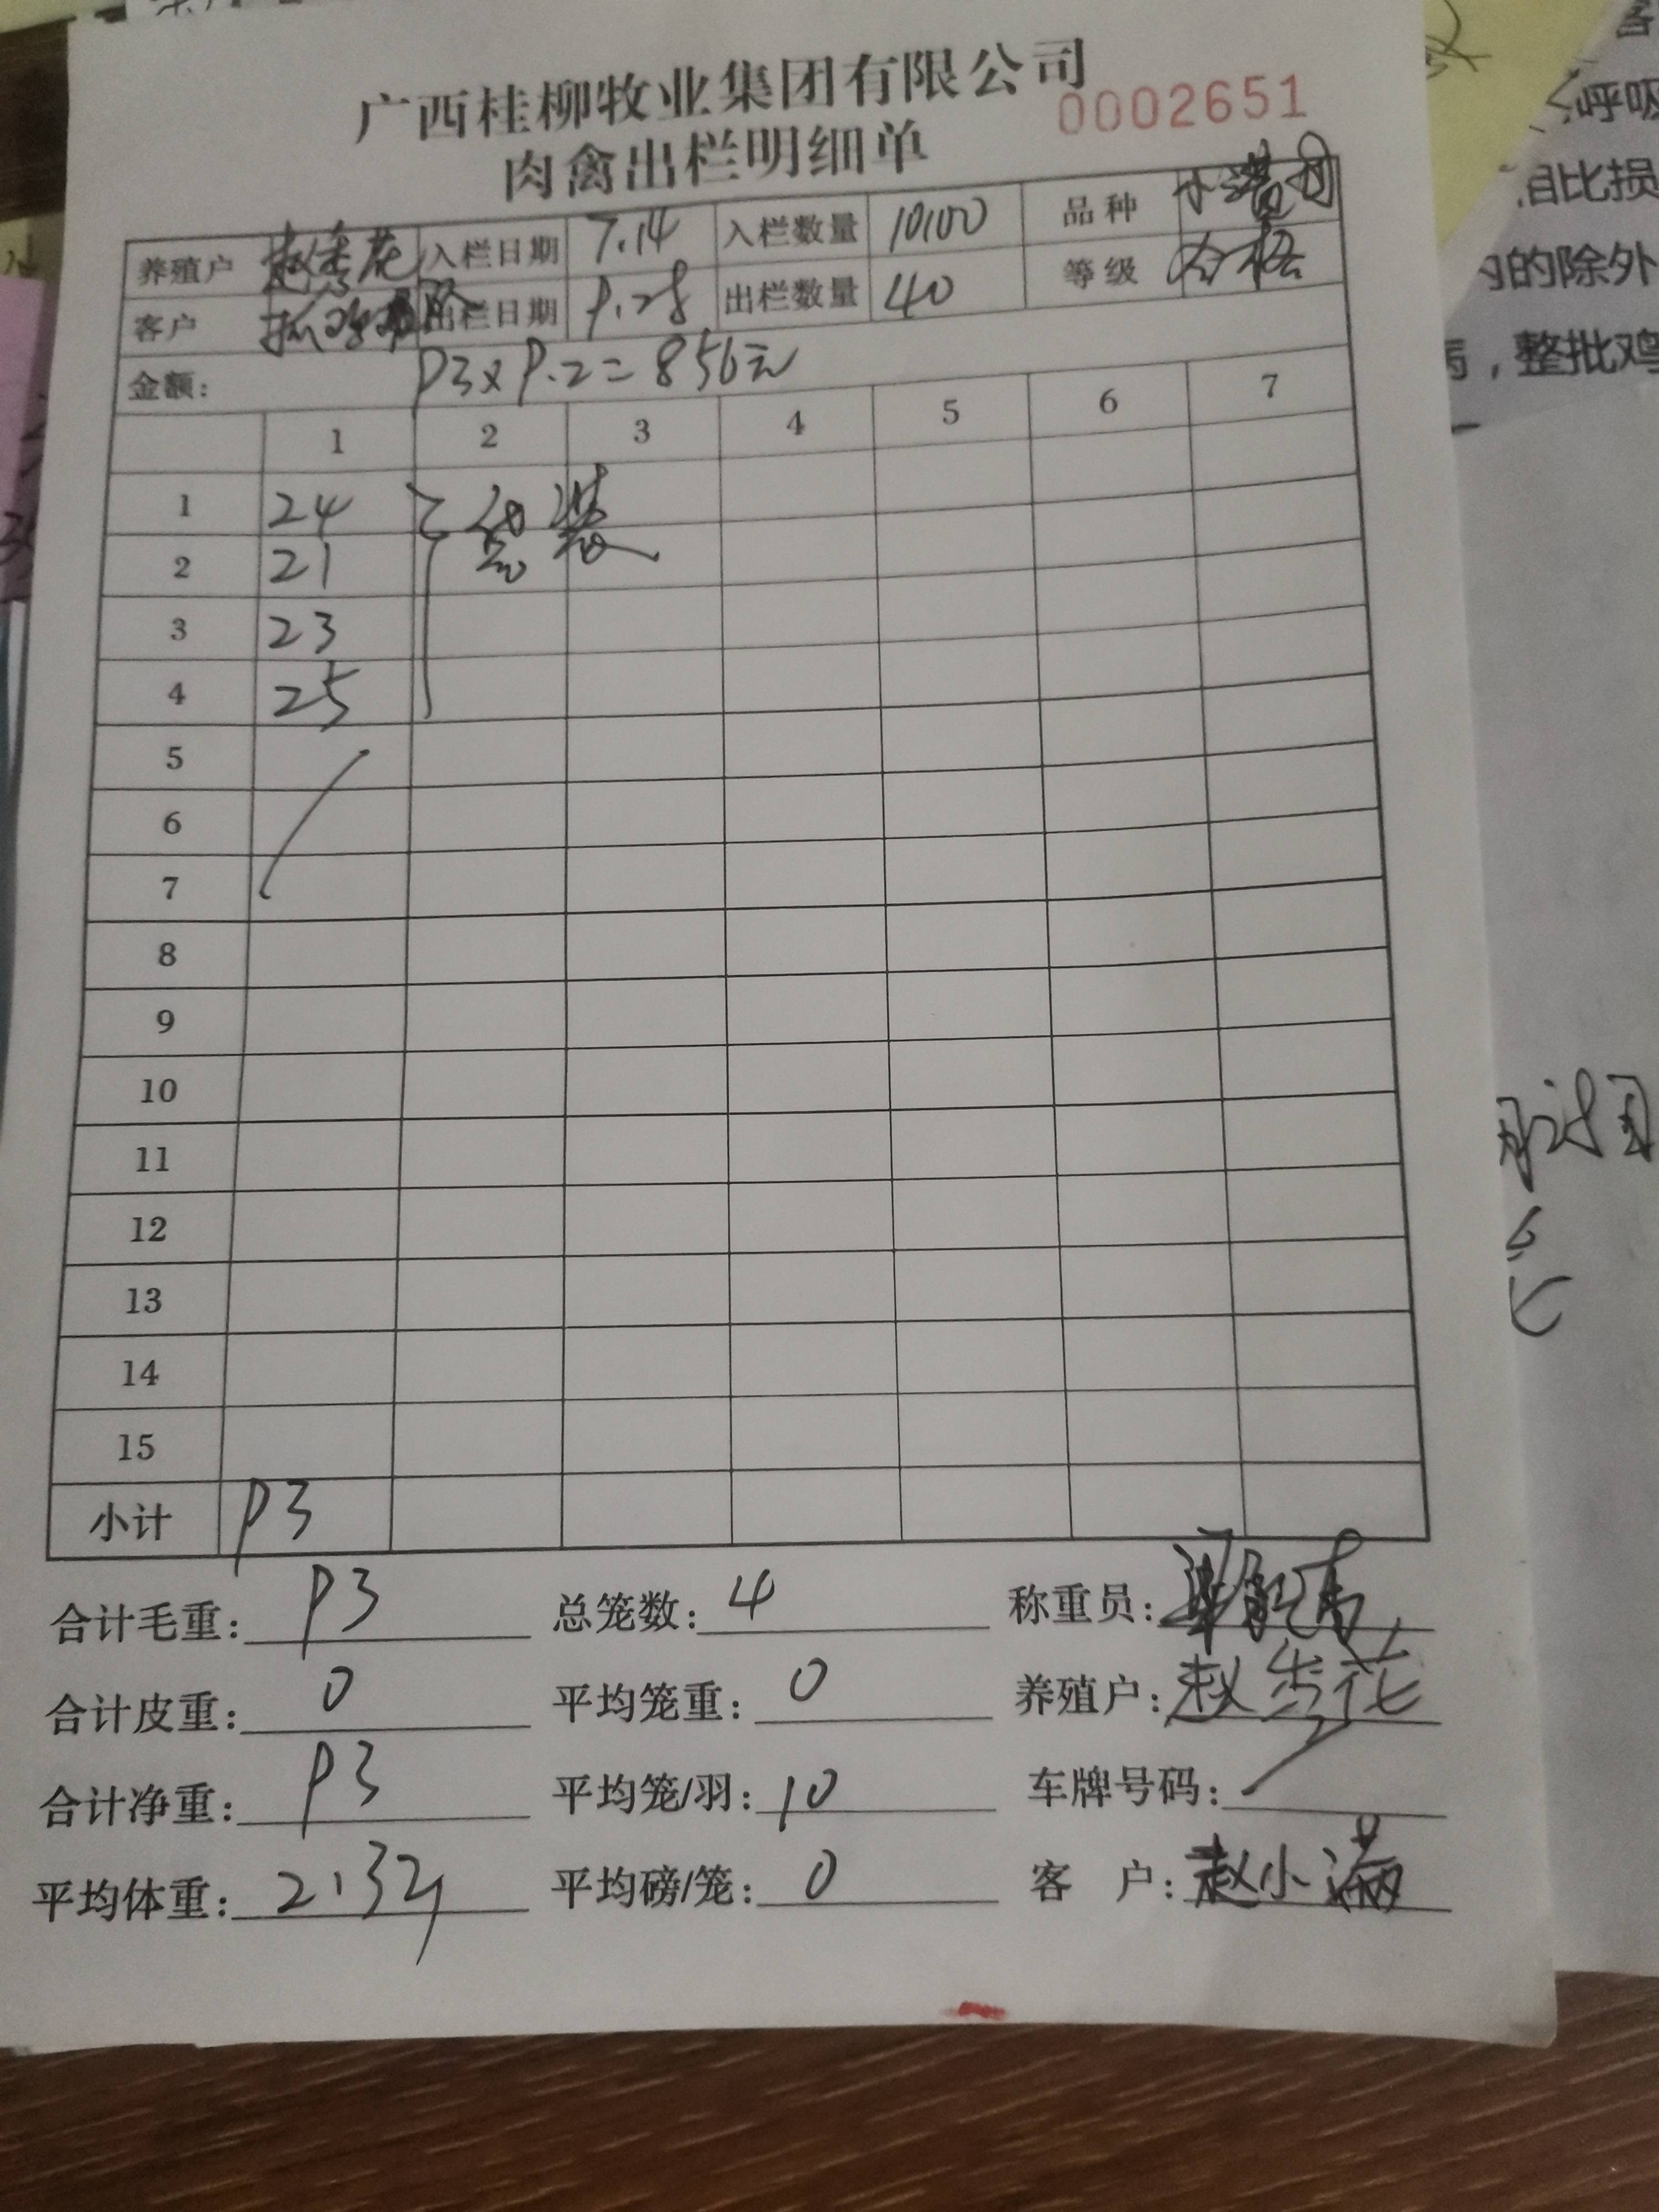 广西桂柳牧业集团有限公司
0002651
肉禽出栏明细单
养殖户 赵秀花 入栏日期 7.14 入栏数量 10100 品种
客户 抓鸡 出栏日期 9.28 出栏数量 40 等级 合格
金额: 93x9.2=856元
1 2 3 4 5 6 7
1 24 袋装
2 21
3 23
4 25
5
6
7
8
9
10
11
12
13
14
15
小计 93
合计毛重: 93 总笼数: 4 称重员:
合计皮重: 0 平均笼重: 0 养殖户: 赵秀花
合计净重: 93 平均笼/羽: 10 车牌号码:
平均体重: 2.32 平均磅/笼: 0 客 户: 赵小满
呼吸
相比损
内的除外
,整批鸡